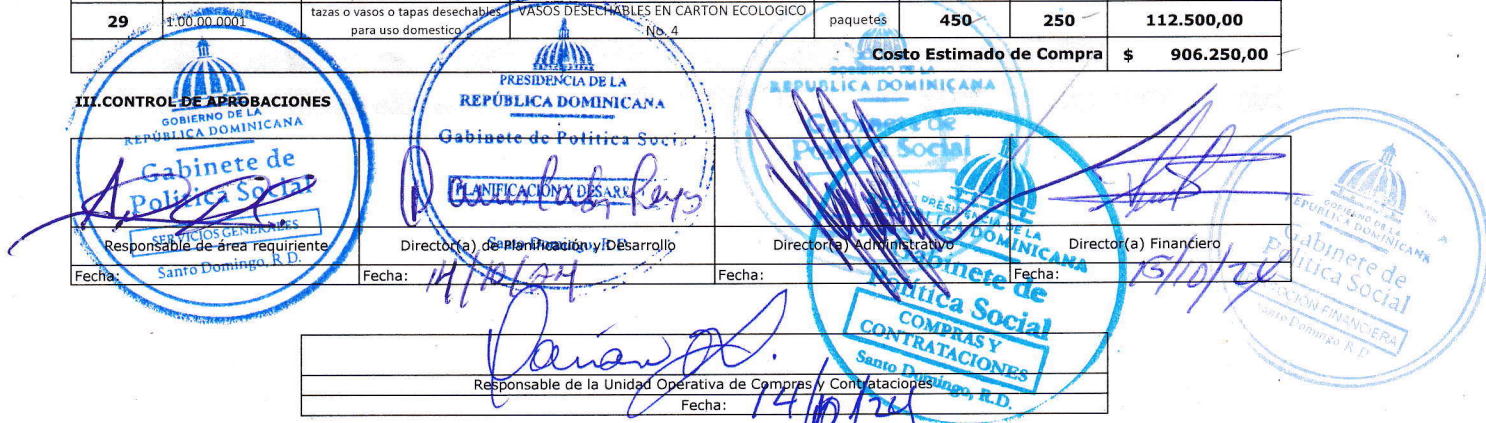 29 1.00.00.0001 tazas o vasos o tapas desechables para uso domestico VASOS DESECHABLES EN CARTON ECOLOGICO No. 4 paquetes 450 250 112.500,00
Costo Estimado de Compra $ 906.250,00
III.CONTROL DE APROBACIONES
GOBIERNO DE LA
REPÚBLICA DOMINICANA
Gabinete de
Política Social
SERVICIOS GENERALES
Santo Domingo, R.D.
PRESIDENCIA DE LA
REPÚBLICA DOMINICANA
Gabinete de Política Social
PLANIFICACIÓN Y DESARR
Santo Domingo, R.D.
GOBIERNO DE LA
REPÚBLICA DOMINICANA
Gabinete de
Política Social
PRESIDENCIA DE LA
REPÚBLICA DOMINICANA
Gabinete de
Política Social
COMPRAS Y
CONTRATACIONES
Santo Domingo, R.D.
GOBIERNO DE LA
REPÚBLICA DOMINICANA
Gabinete de
Política Social
DIRECCIÓN FINANCIERA
Santo Domingo, R.D.
Responsable de área requiriente Director(a) de Planificación y Desarrollo Director(a) Administrativo Director(a) Financiero
Fecha: Fecha: 14/10/24 Fecha: Fecha: 15/10/24
Responsable de la Unidad Operativa de Compras y Contrataciones
Fecha: 14/10/24